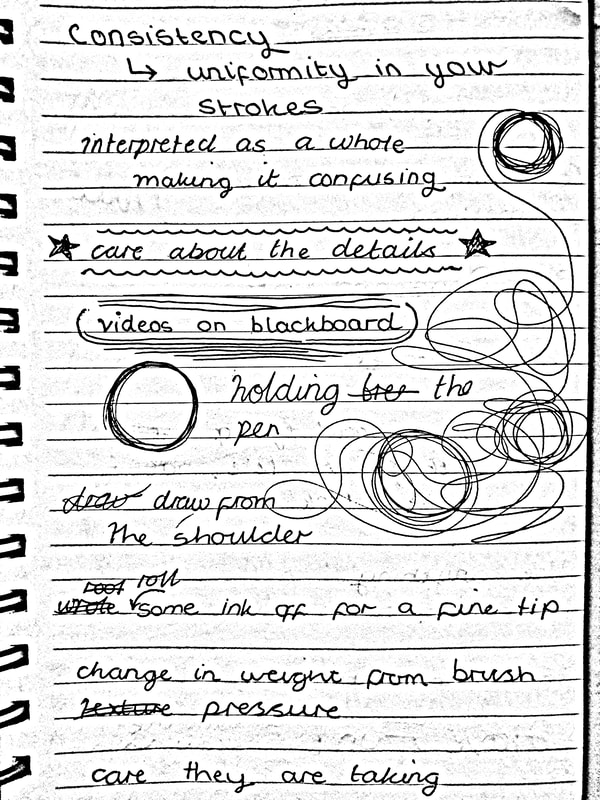 Consistency
↳ uniformity in your
strokes
interpreted as a whole
making it confusing
care about the details
(videos on blackboard)
holding the
pen
draw draw from
the shoulder
root roll
wrote some ink off for a fine tip
change in weight from brush
texture pressure
care they are taking